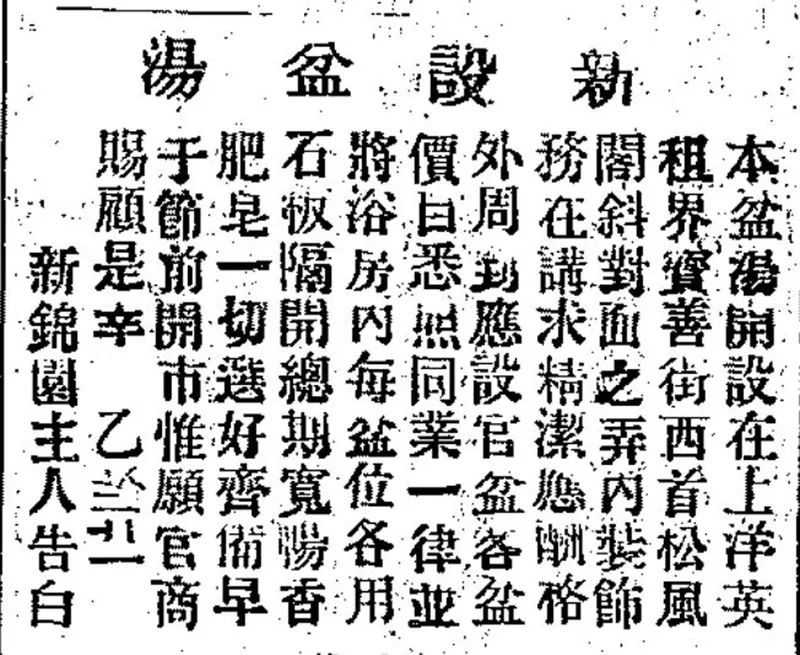 新設盆湯
本盆湯開設在上洋英
租界寳善街西首松風
閣斜對面之弄內裝飾
務在講求精潔應酬格
外周到應設官盆客盆
價目悉照同業一律並
將浴房內每盆位各用
石板隔開總期寬暢香
肥皂一切選好齊備早
于節前開市惟願官商
賜顧是幸 乙
新錦園主人告白